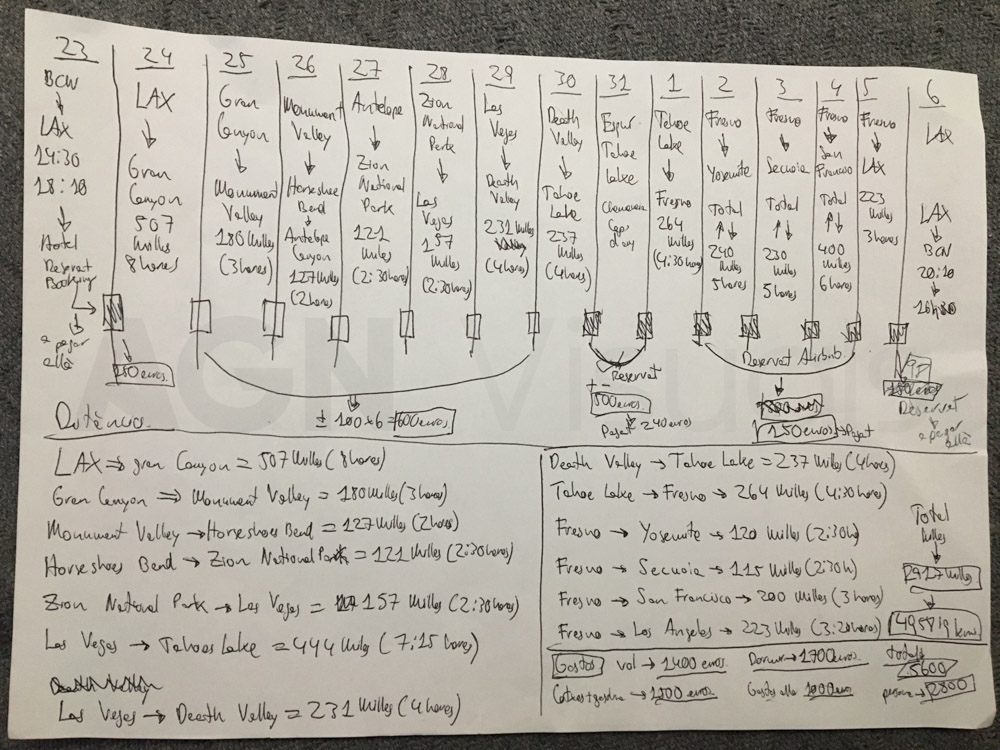 23
BCN
LAX
14:30
18:10
Hotel
Reservat
Booking
a pagar
allà
24
LAX
Gran
Canyon
507
milles
8 hores
25
Gran
Canyon
Monument
Valley
180 milles
(3 hores)
26
Monument
Valley
Horseshoe
Bend
Antelope
Canyon
127 milles
(2 hores
27
Antelope
Zion
National
Park
121
milles
(2:30 hores)
28
Zion
National
Park
Las
Vegas
157
milles
(2:30 hores)
29
Las
Vegas
Death
Valley
231 milles
(4 hores)
30
Death
Valley
Tahoe
Lake
237
milles
(4 hores)
31
Esquí
Tahoe
Lake
Cap d'any
1
Tahoe
Lake
Fresno
264
milles
(4:30 hores)
2
Fresno
Yosemite
Total
240
milles
5 hores
3
Fresno
Secuoia
Total
230
milles
5 hores
4
Fresno
San
Francisco
Total
400
milles
6 hores
5
Fresno
LAX
223
milles
3 hores
6
LAX
LAX
BCN
20:10
16h30
150 euros
± 100x6 = 600 euros
Reservat
+-
500 euros
Pagat 240 euros
Reservat Airbnb
150 euros → Pagat
Reservat
a pagar
allà
Distàncies
LAX ⇒ gran Canyon = 507 milles (8 hores)
Gran Canyon ⇒ Monument Valley = 180 milles (3 hores)
Monument Valley → Horseshoes Bend = 127 milles (2 hores)
Horseshoes Bend → Zion National Park = 121 milles (2:30 hores)
Zion National Park → Las Vegas = 157 milles (2:30 hores)
Las Vegas → Tahoes Lake = 444 milles (7:15 hores)
Las Vegas → Death Valley = 231 milles (4 hores)
Death Valley → Tahoe Lake = 237 milles (4 hores)
Tahoe Lake → Fresno → 264 milles (4:30 hores)
Fresno → Yosemite → 120 milles (2:30h)
Fresno → Secuoia → 115 milles (2:30h)
Fresno → San Francisco → 200 milles (3 hores)
Fresno → Los Angeles → 223 milles (3:20 hores)
Total
milles
2917 milles
Gastos vol → 1400 euros Dormir → 1700 euros totals
5600
Cotxes + gasolina → 1200 euros Gastos allà 1000 euro persona → 2800
AGN Visuals